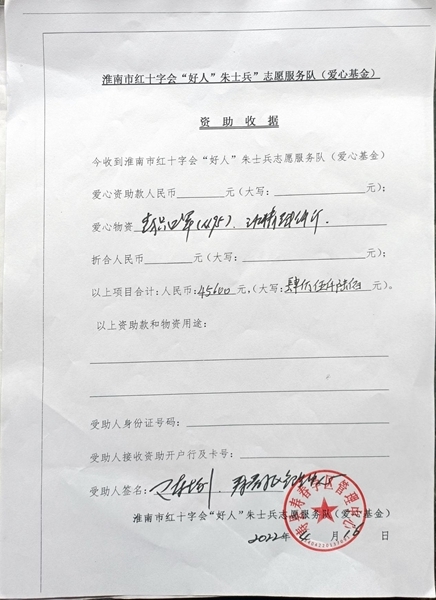 淮南市红十字会“好人”朱士兵”志愿服务队（爱心基金）
资 助 收 据
今收到淮南市红十字会“好人”朱士兵志愿服务队（爱心基金）
爱心资助款人民币________元（大写：____________元）；
爱心物资
折合人民币________元（大写：____________元）；
以上项目合计：人民币：45600元，（大写：肆万伍仟陆佰元）。
以上资助款和物资用途：
受助人身份证号码：
受助人接收资助开户行及卡号：
受助人签名：
淮南市红十字会“好人”朱士兵志愿服务队（爱心基金）
2022年 11 月 16 日